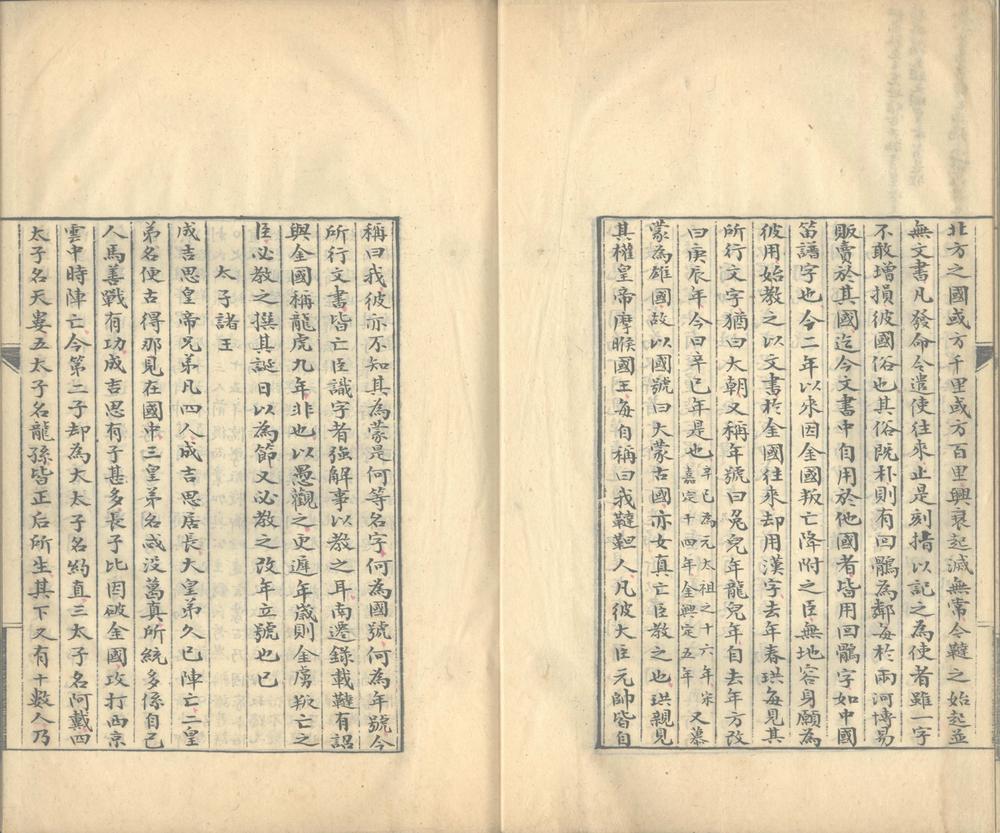 北方之國或方千里或方百里興衰起滅無常今韃之始起並
無文書凡發命令遣使往來止是刻揩以記之為使者雖一字
不敢增損彼國俗也其俗既朴則有回鶻為鄰每於兩河博易
販賣於其國迄今文書中自用於他國者皆用回鶻字如中國
笛譜字也今二年以來因金國叛亡降附之臣無地容身願為
彼用始教之以文書於金國往來却用漢字去年春珙每見其
所行文字猶曰大朝又稱年號曰兔兒年龍兒年自去年方改
曰庚辰年今曰辛巳年是也辛巳為元太祖之十六年宋嘉定十四年金興定五年又慕
蒙為雄國故以國號曰大蒙古國亦女真亡臣教之也珙親見
其權皇帝摩睺國王每自稱曰我韃靼人凡彼大臣元帥皆自
稱曰我彼亦不知其為蒙是何等名字何為國號何為年號今
所行文書皆亡臣識字者强解事以教之耳南遷錄載韃有詔
與金國稱龍虎九年非也以愚觀之更遲年歲則金虜叛亡之
臣必教之撰其誕日以為節又必教之改年立號也已
太子諸王
成吉思皇帝兄弟凡四人成吉思居長大皇弟久已陣亡二皇
弟名便古得那見在國中三皇弟名忒没葛真所統多係自己
人馬善戰有功成吉思有子甚多長子比因破金國攻打西京
雲中時陣亡今第二子却為大太子名約直三太子名阿戴四
太子名天婁五太子名龍孫皆正后所生其下又有十数人乃